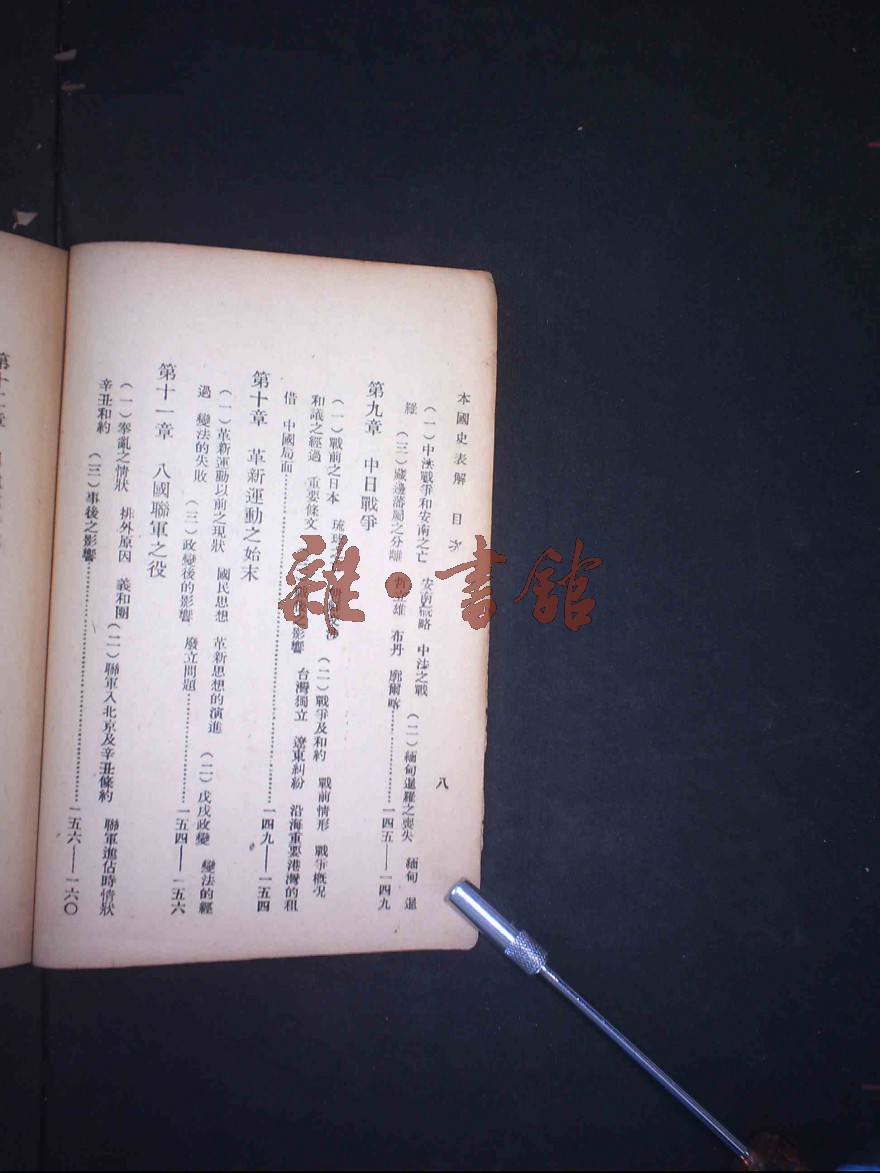 本國史表解　目次
八
(一)中法戰爭和安南之亡　安南概略　中法之戰　(二)緬甸暹羅之喪失　緬甸　暹
羅　(三)藏邊藩屬之分離　哲孟雄　布丹　廓爾喀…………一四五——一四九
第九章　中日戰爭
(一)戰前之日本　琉球　(二)戰爭及和約　戰前情形　戰爭概況
和議之經過　重要條文　戰後之影響　台灣獨立　遼東糾紛　沿海重要港灣的租
借　中國局面…………一四九——一五四
第十章　革新運動之始末
(一)革新運動以前之現狀　國民思想　革新思想的演進　(二)戊戌政變　變法的經
過　變法的失敗　(三)政變後的影響　廢立問題…………一五四——一五六
第十一章　八國聯軍之役
(一)拳亂之情狀　排外原因　義和團　(二)聯軍入北京及辛丑條約　聯軍進佔時情狀
辛丑和約　(三)事後之影響…………一五六——一六〇
第十二章
雜·書館